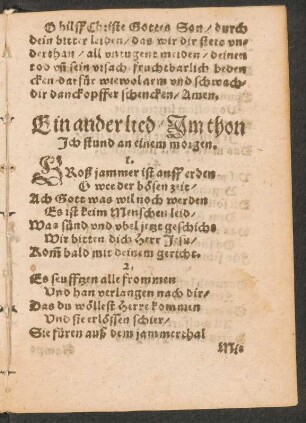 O hilff Christe Gottes Son/durch
dein bitter leiden/das wir dir stets vn-
derthan/all vntugent meiden/deinen
tod vñ sein vrsach/fruchtbarlich beden
cken dafür wiewol arm und schwach-
dir danckopffer schencken/Amen.
Ein ander lied/Im thon
Ich stund an einem morgen.
1.
GRoß jammer ist auff erden
O wee der bösen zeit/
Ach Gott was wil noch werden
Es ist keim Menschen leid/
Was sünd vnd vbel jetzt geschicht
Wir bitten dich Herr Jesu/
Kom̃ bald mit deinem gericht.
2.
Es seufftzen alle frommen
Vnd han verlangen nach dir/
Das du wöllest Herre kommen
Vnd sie erlössen schier/
Sie füren auß dem jammerthal